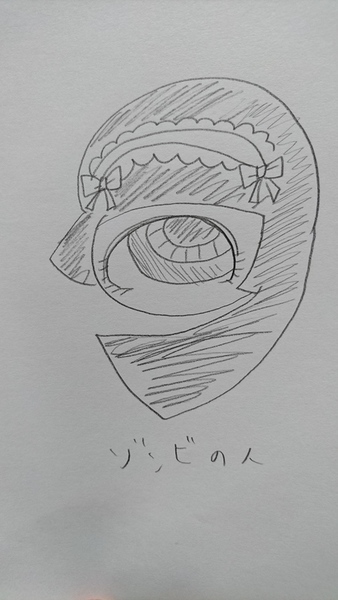 ゾンビの人